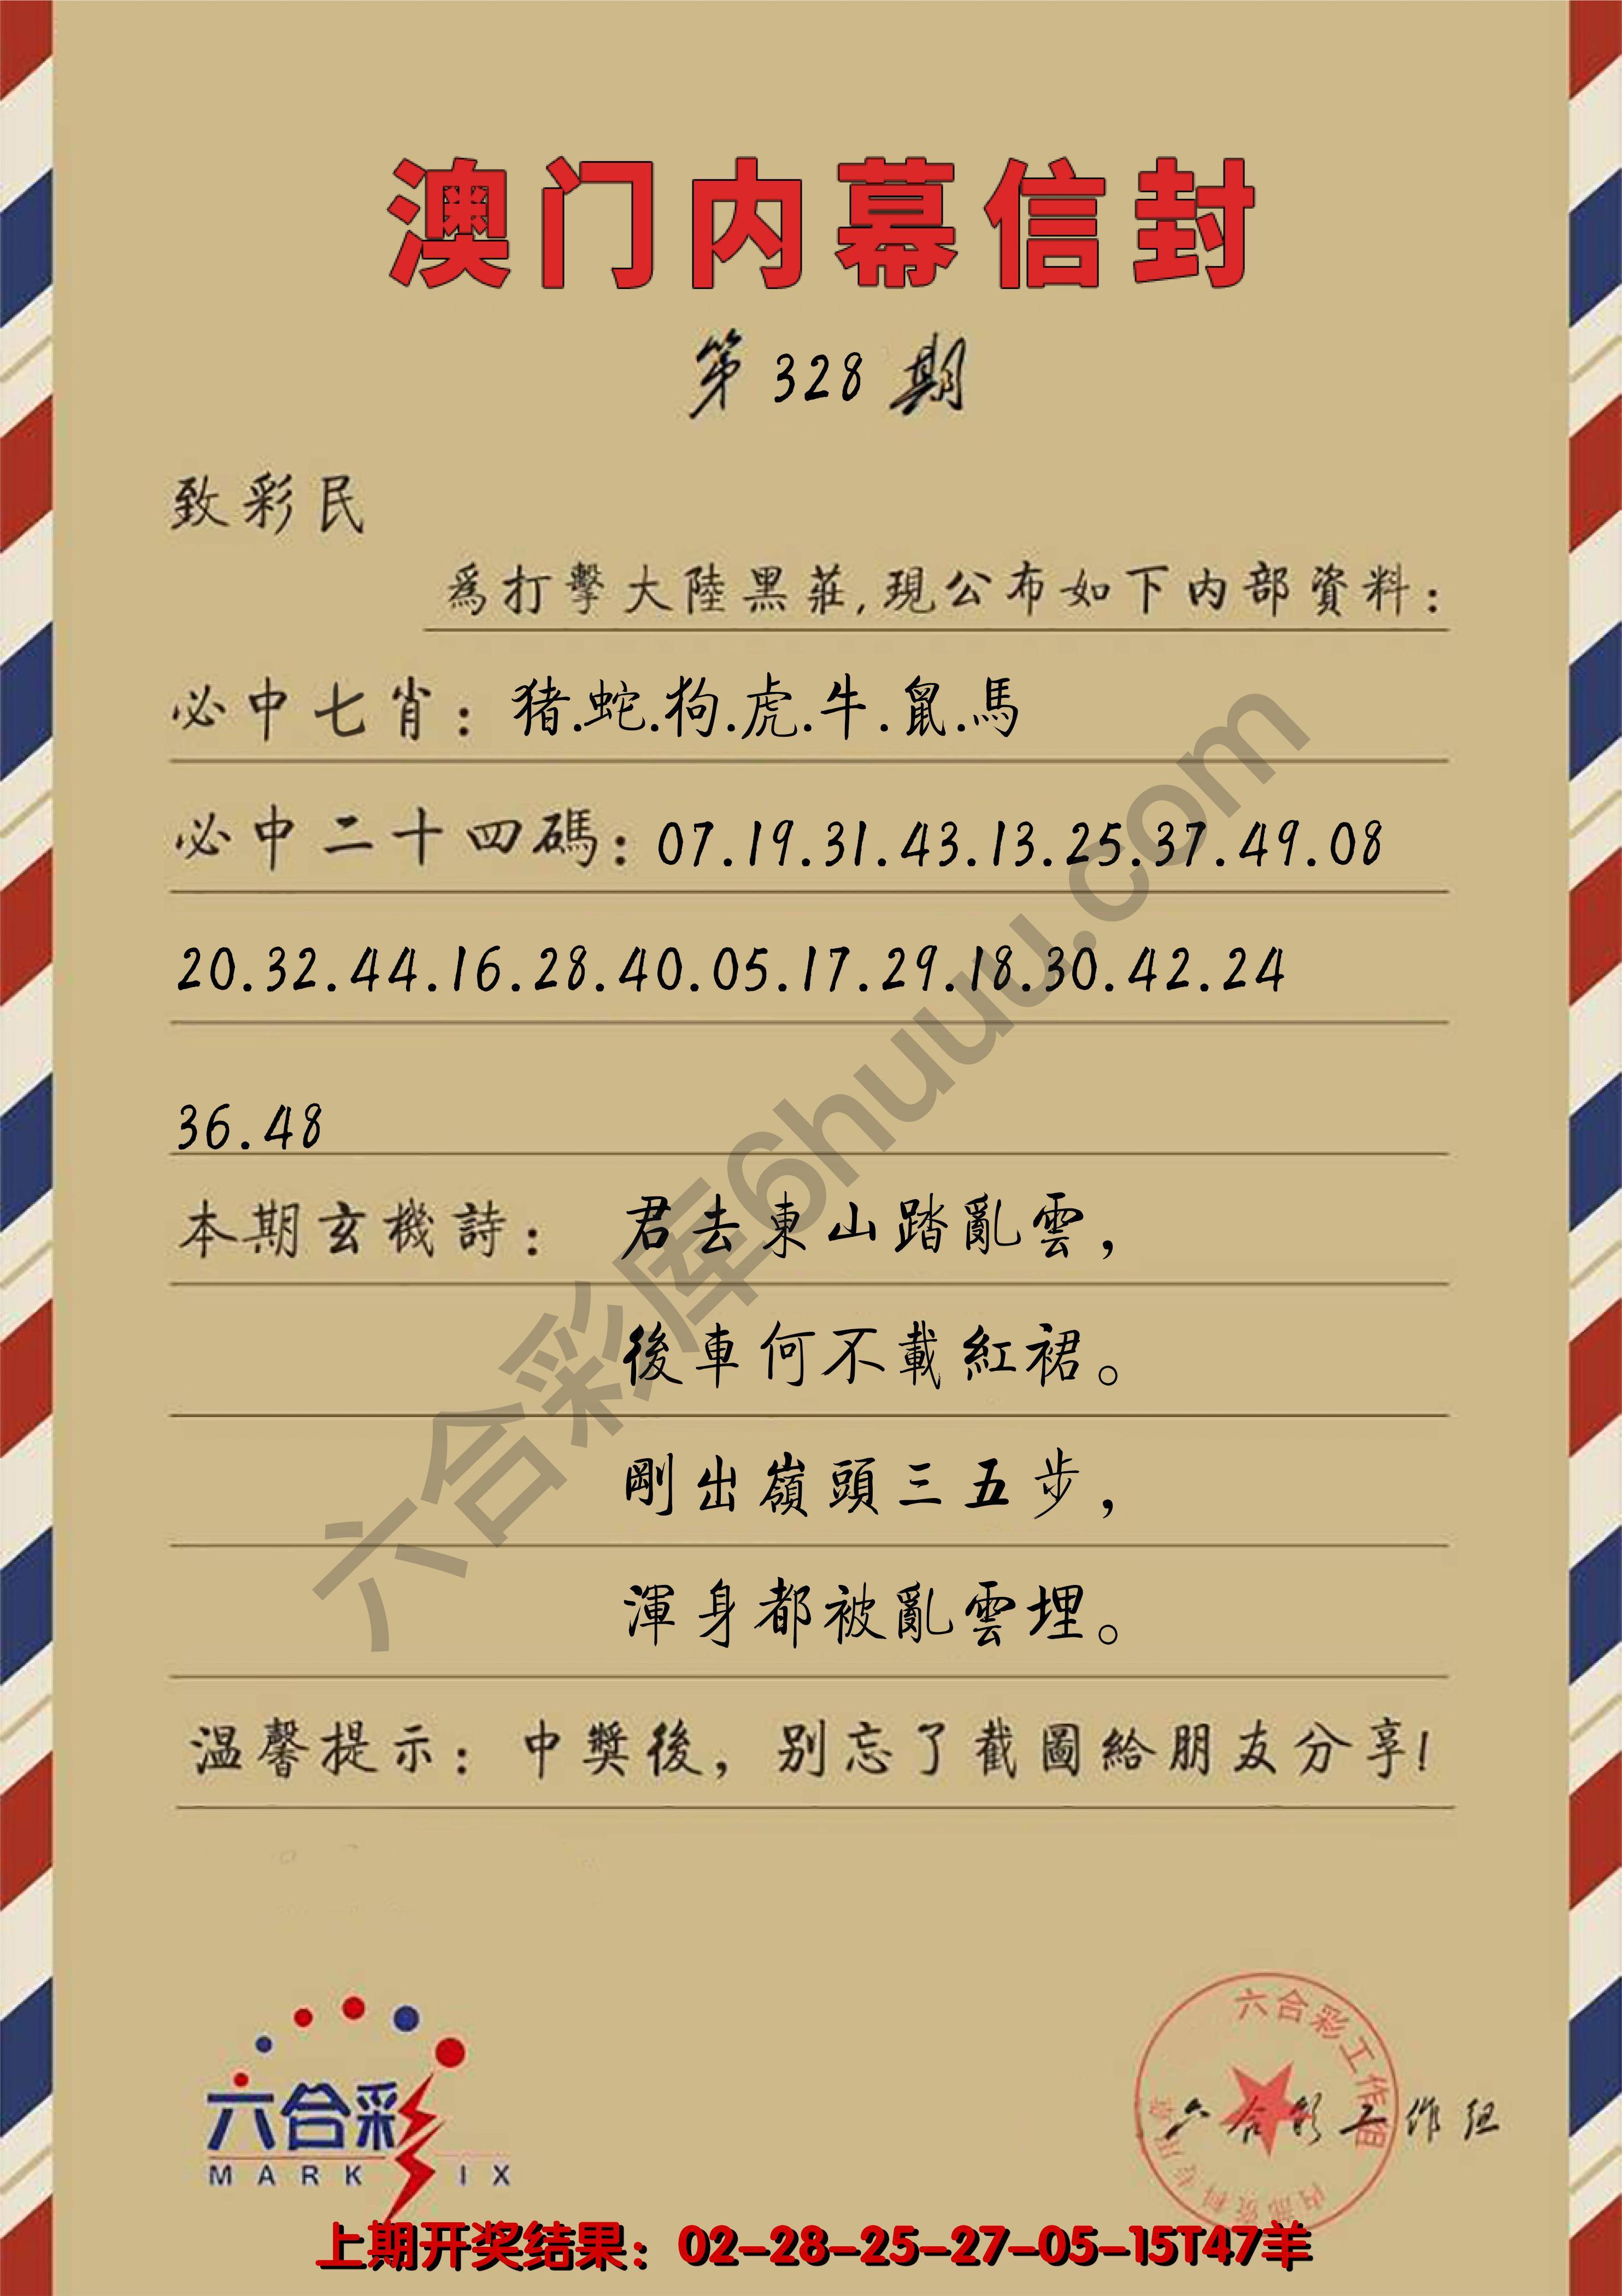 澳门内幕信封
第 328 期
致彩民
爲打擊大陸黑莊,現公布如下内部資料:
必中七肖: 猪.蛇.狗.虎.牛.鼠.馬
必中二十四碼: 07.19.31.43.13.25.37.49.08
20.32.44.16.28.40.05.17.29.18.30.42.24
36.48
本期玄機詩: 君去東山踏亂雲,
後車何不載紅裙。
剛出嶺頭三五步,
渾身都被亂雲埋。
温馨提示: 中獎後, 别忘了截圖給朋友分享!
六合彩库6huuu.com
六合彩
MARK IX
六合彩工作组
内部资料专用章
六合彩工作组
上期开奖结果: 02-28-25-27-05-15T47羊